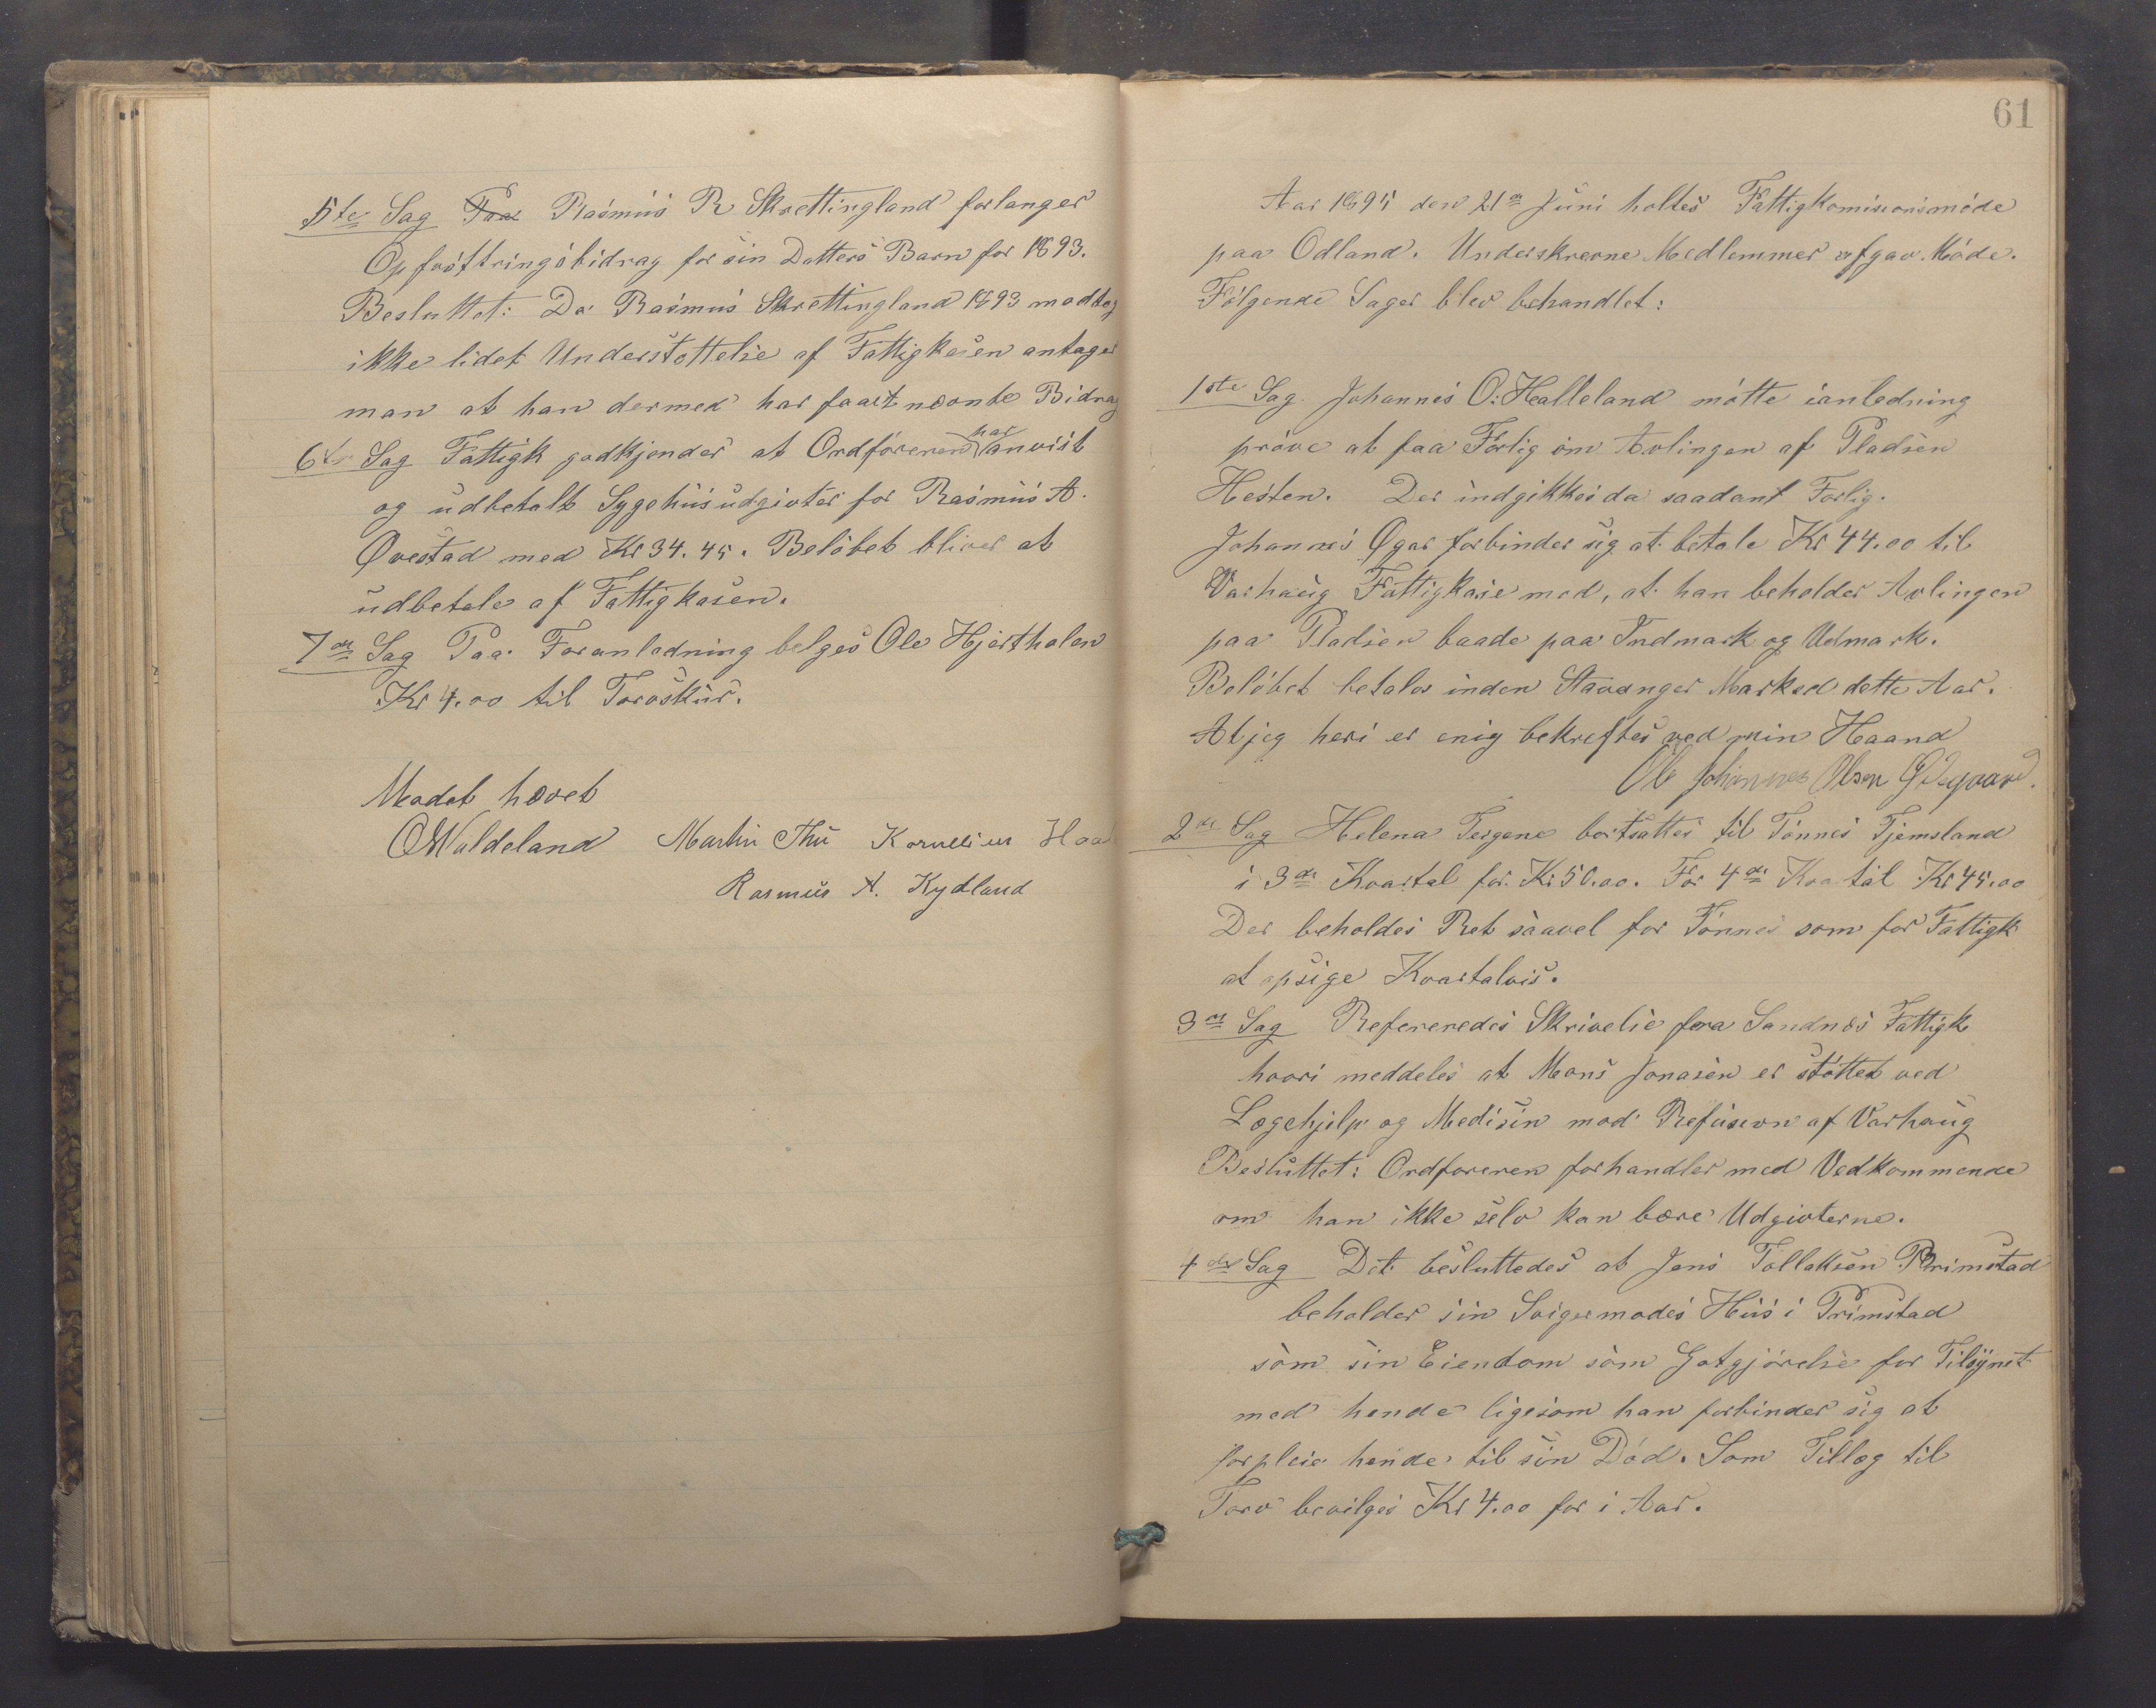 5te Sag Paa Rasmus R Skrettingland forlanger
Opfostringsbidrag for sin Datters Barn for 1893.
Besluttet: Da Rasmus Skrettingland 1893 modtog
ikke lidet Understøttelse af Fattigkasen antager
man at han dermed har faaet nævnte Bidrag
6te Sag Fattigk godkjender at Ordføreren har anvist
og udbetalt Sygehusudgivter for Rasmus A.
Øvestad med Kr 34.45. Beløbet bliver at
udbetale af Fattigkasen.
7de Sag Paa Foranledning belges Ole Hjerthølen
Kr 4.00 til Torvskur.
Mødet hævet
Martin Thu Kornelius
Rasmus A. Kydland
61
Aar 1895 den 21de Juni holtes Fattigkomisionsmøde
paa Odland. Underskrevne Medlemmer afgav Møde.
Følgende Sager blev behandlet:
1ste Sag. Johannes O: Halleland møtte ianledning
prøve at faa Forlig om Avlingen af Pladsen
Hesten. Der indgikkes da saadant Forlig.
Johannes Øgar forbinder sig at betale Kr 44.00 til
Varhaug Fattigkasse med, at han beholder Avlingen
paa Pladsen baade paa Indmark og Udmark.
Beløbet betales inden Stavanger Marked dette Aar.
At jeg heri er enig bekreftes ved min Haand
Ole Johannes Olsen Ødegaard.
2de Sag Helena Tergene bortsattes til Tønnes Tjemsland
i 3de Kvartal for Kr 50.00. For 4de Kvatal Kr 45.00
Der beholdes Ret saavel for Tønnes som for Fattigk
at opsige Kvartalvis.
3die Sag Refereredes Skrivelse fra Sandnes Fattigk
hvori meddeles at Mons Jonasen er støttet ved
Lægehjelp og Medisin mod Refusion af Varhaug
Besluttet: Ordføreren forhandler med Vedkommende
om han ikke selv kan bære Udgivterne.
4de Sag Det besluttedes at Jens Tollaksen Primstad
beholder sin Svigermodes Hus i Primstad
som sin Eiendom som Gotgjørelse for Tilsynet
med hende ligesom han forbinder sig at
forpleie hende til sin Død. Som Tillæg til
Torv bevilges Kr 4.00 for i Aar.